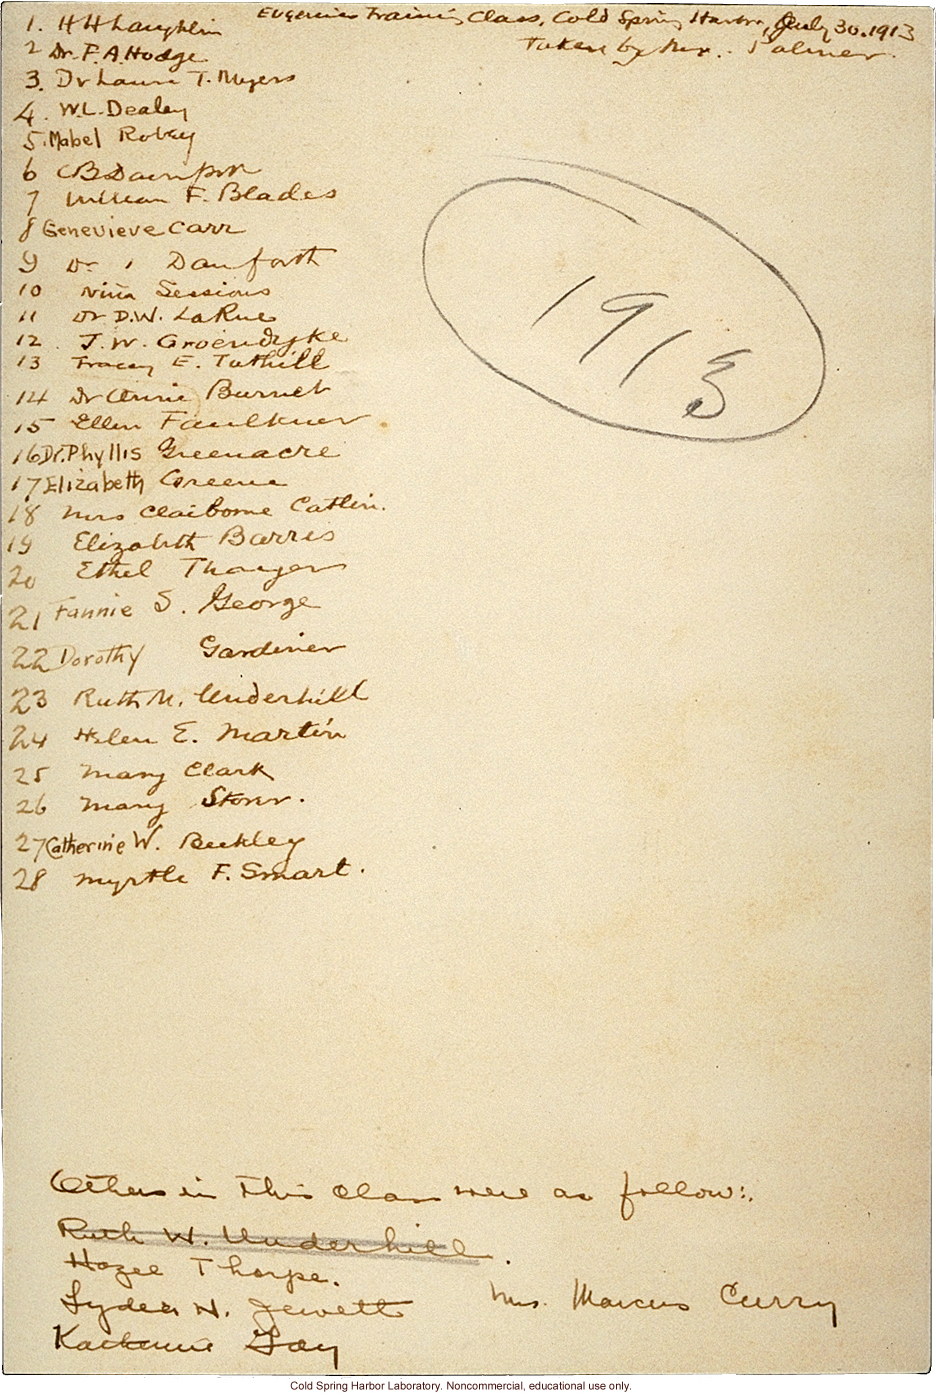 Eugenics Training Class, Cold Spring Harbor, July 30. 1913
Taken by Mr. Palmer.
1. HH Laughlin
2 Dr. F. A. Hodge
3. Dr Laura T. Myers
4. W.L. Dealey
5. Mabel
6 CB Davenport
7 William F. Blades
8 Genevieve Carr
9 Dr Danforth
10 Nina Sessions
11 Dr D.W. LaRue
12. J. W. Groendyke
13 Tracey E. Tuthill
14 Dr Annie Burnet
15 Ellen Faulkner
16 Dr. Phyllis Greenacre
17 Elizabeth Greene
18 Mrs Claiborne Catlin.
19 Elizabeth Barris
20 Ethel Thayer
21 Fannie S. George
22 Dorothy Gardiner
23 Ruth M. Underhill
24 Helen E. Martin
25 Mary Clark
26 Mary Storer.
27 Catherine W. Beckley
28 Myrtle F. Smart.
1913
Others in this class were as follow:.
Ruth W. Underhill.
Hazel Thorpe.
Lydea H. Jewett
Mrs. Marcus Curry
Katherine Gay
Cold Spring Harbor Laboratory. Noncommercial, educational use only.